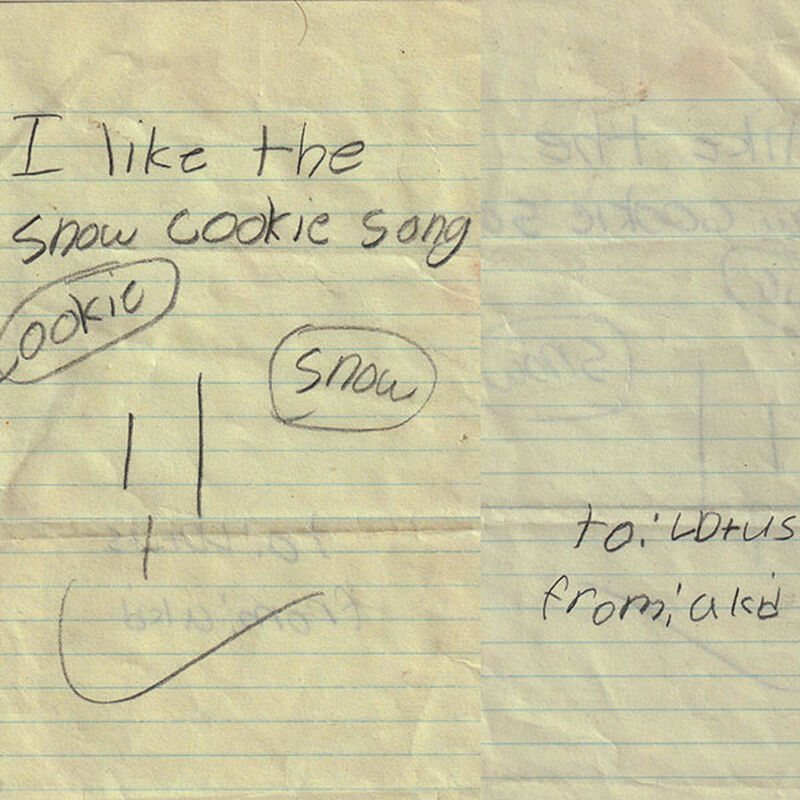 I like the
snow cookie song
ookie
snow
to: Lotus
from: a kid